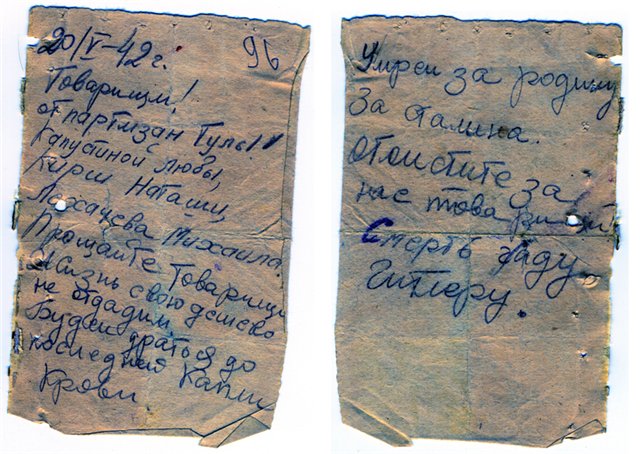 20/V-42 г. 96
Товарищи!
от партизан Тулы!
Капустиной Любы,
Наташи,
Лохачева Михаила.
Прощайте Товарищи
Жизнь свою дешево
не отдадим
Будем драться до
последней Капли
Крови
Умрем за родину
За Сталина.
Отомстите за
нас товарищи
Смерть гаду
Гитлеру.